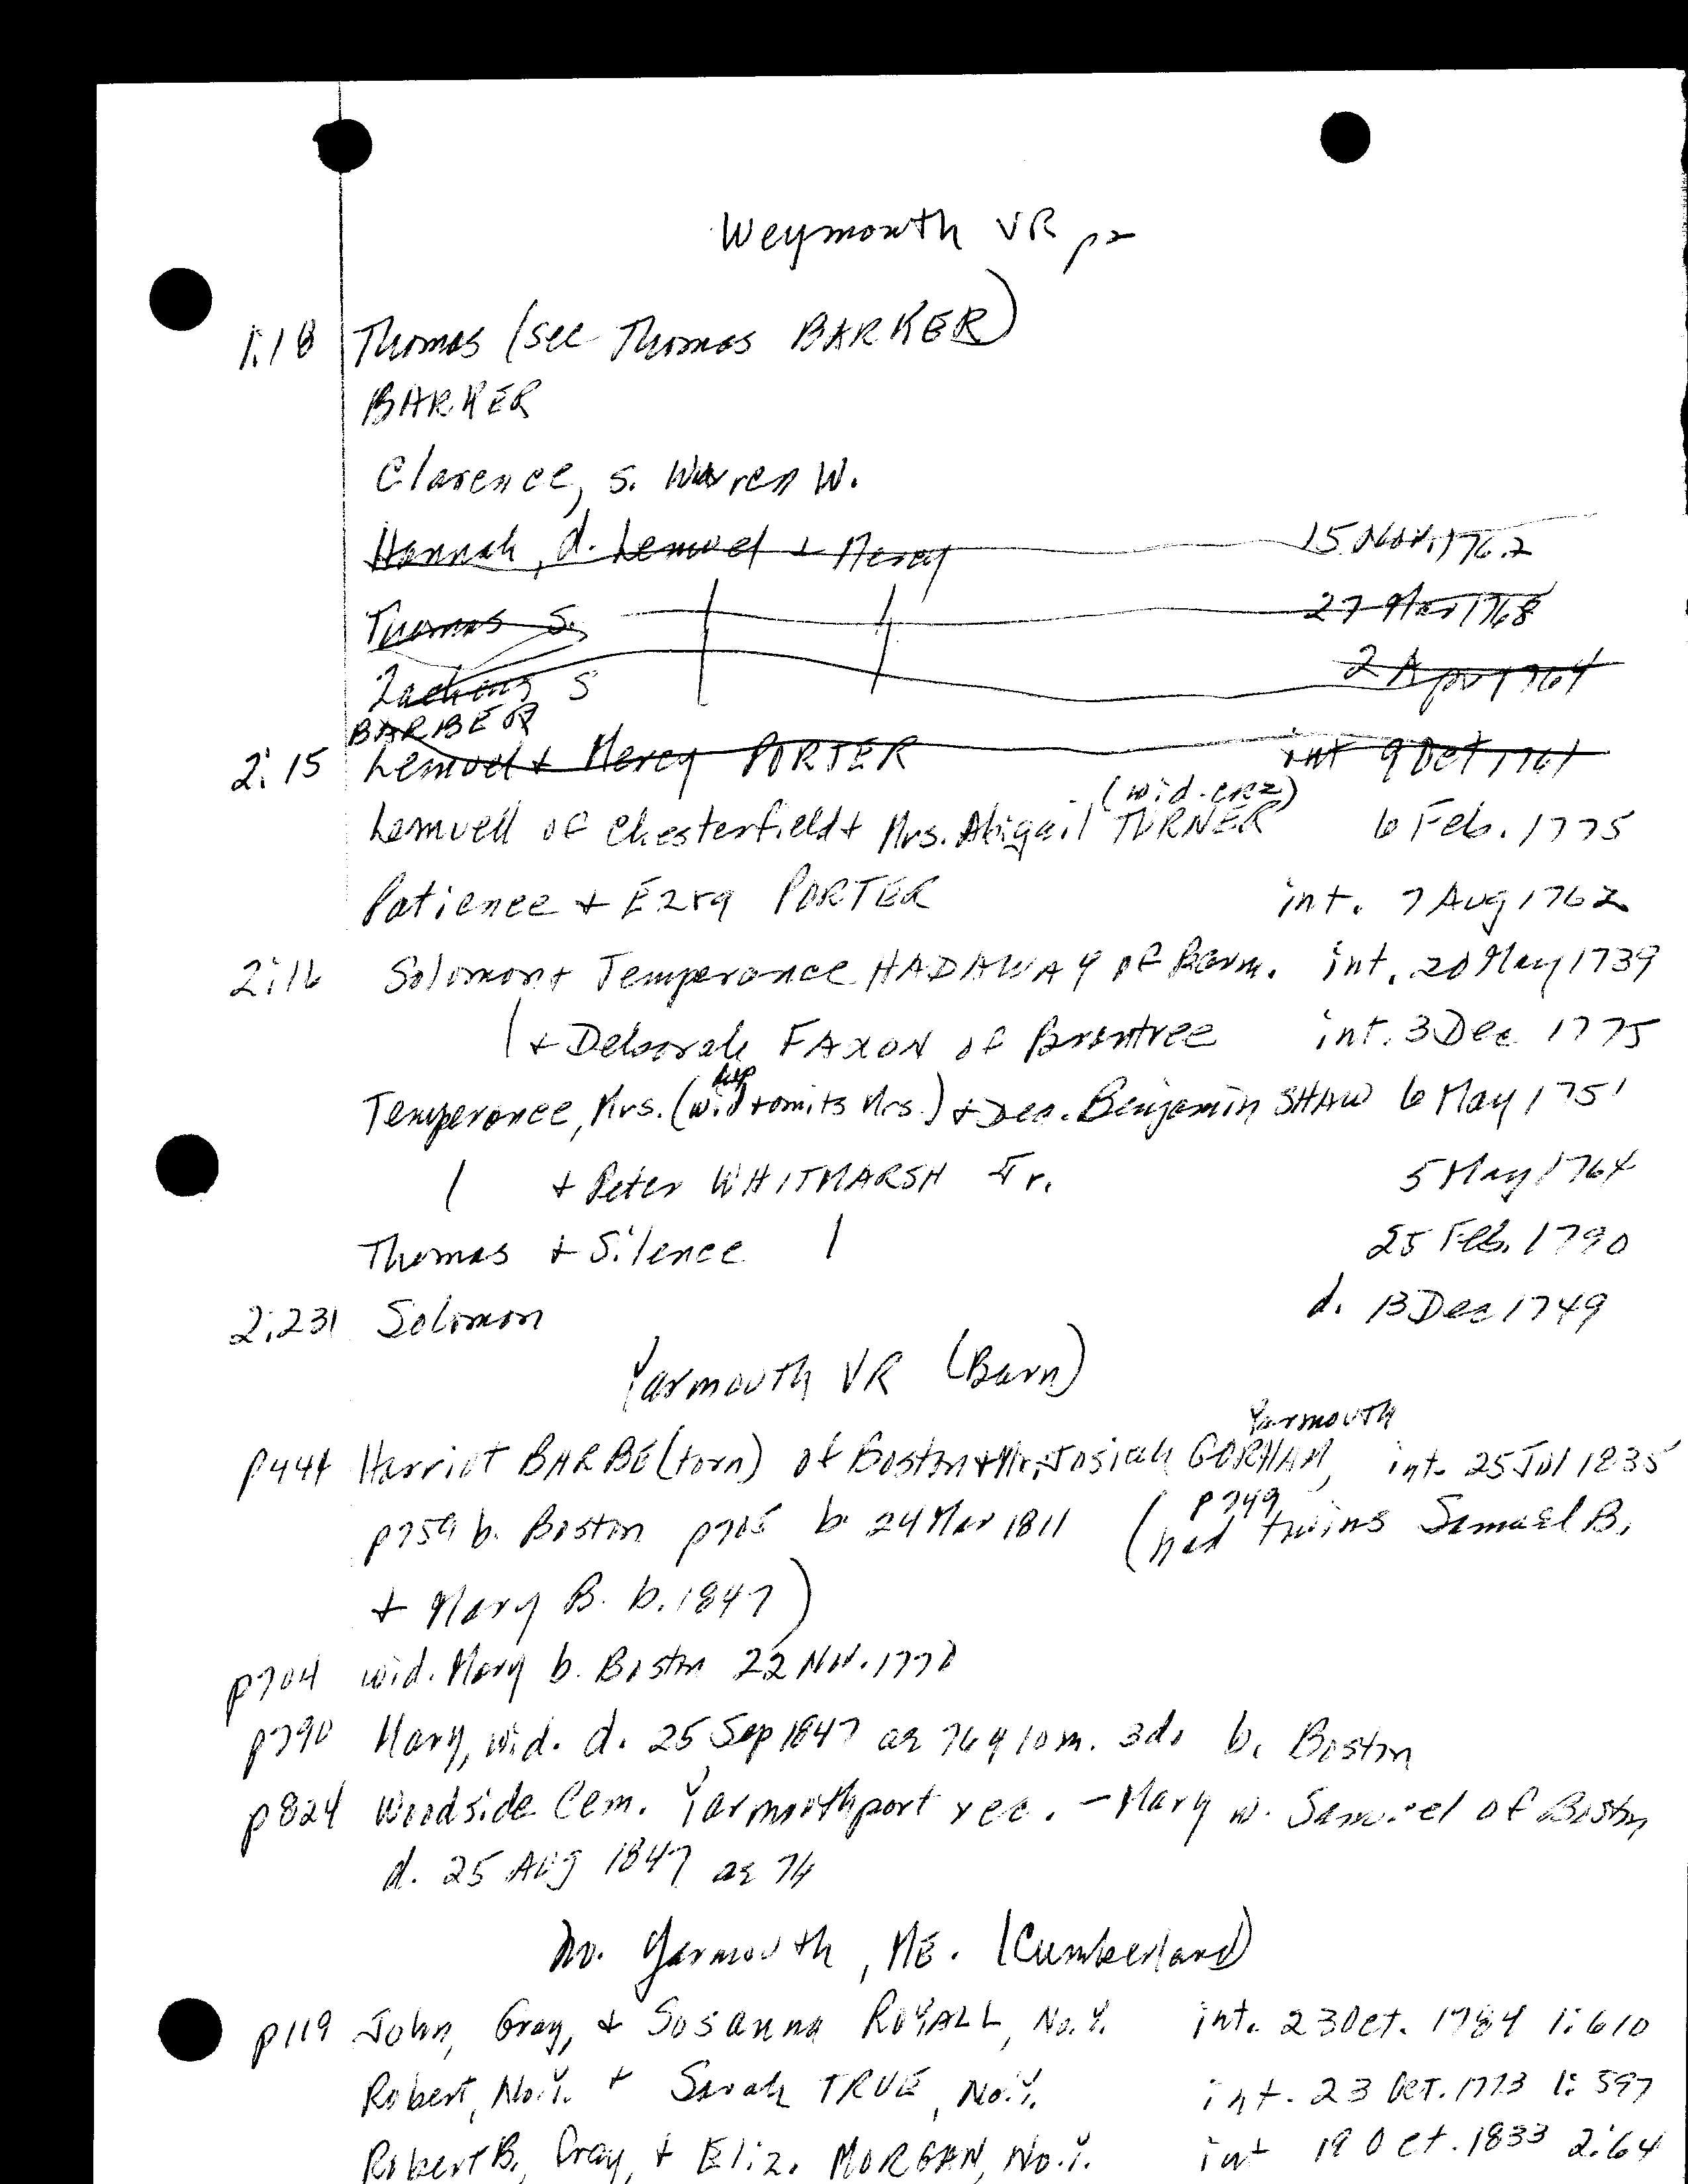 Weymouth VR p2
1:18 Thomas (see Thomas BARKER)
BARKER
Clarence, s. Warren W.
Hannah, d. Lemuel + Mercy 15 Nov. 1762
Thomas S. | | 27 Mar 1768
S | | 2 Apr 1764
BARBER
2:15 Lemuel + Mercy PORTER int 9 Oct 1761
(wid. CR2)
Lemuell of Chesterfield + Mrs. Abigail TURNER 6 Feb. 1775
Patience + Ezra PORTER int. 7 Aug 1762
2:16 Solomon + Temperance HADAWAY of Barn. int. 20 May 1739
| + Deborah FAXON of Braintree int. 3 Dec 1775
Temperance, Mrs. (wid + omits Mrs.) + Dea. Benjamin SHAW 6 May 1751
| + Peter WHITMARSH Jr. 5 May 1764
Thomas + Silence | 25 Feb. 1790
2:231 Solomon d. 13 Dec 1749
Yarmouth VR (Barn)
Yarmouth
p444 Harriot BARBE(torn) of Boston + Mr. Josiah GORHAM, int. 25 Jul 1835
p759 b. Boston p705 b. 24 Mar 1811 (had p749 twins Samuel B.
+ Mary B. b. 1847)
p704 wid. Mary b. Boston 22 Nov. 1770
p790 Mary, wid. d. 25 Sep 1847 ae 76 y 10 m. 3 d. b. Boston
p824 Woodside Cem. Yarmouthport rec. - Mary w. Samuel of Boston
d. 25 Aug 1847 ae 76
No. Yarmouth, ME. (Cumberland)
p119 John, Gray, + Susanna ROYALL, No. Y. int. 23 Oct. 1784 1:610
Robert, No. Y. + Sarah TRUE, No. Y. int. 23 Oct. 1773 1:597
Robert B., Gray, + Eliz. MORGAN, No. Y. int 19 Oct. 1833 2:64